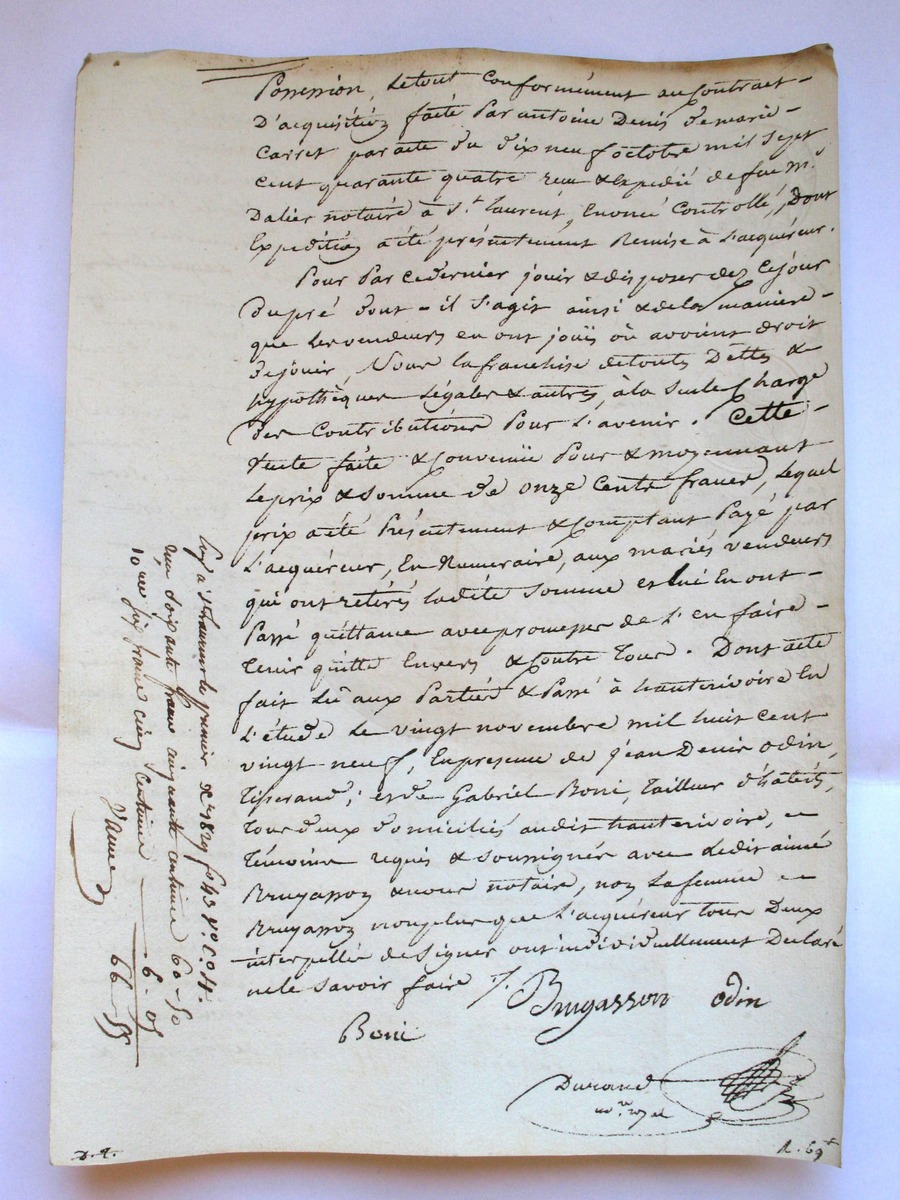 Possession, le tout Conformément au Contract
D'acquisition faite Par antoine Denis de marie
Carret par acte du dix neuf octobre mil sept
cent quarante quatre reçu & Expédié de feu m.e
Dalier notaire à S.t laurent, Enoncé Controllé, Dont
Expédition a été présentement Remise à L'acquéreur.
Pour Par ce dernier jouir & disposer dez Ce jour
du pré dont - il s'agit ainsi & de la maniere -
que les vendeurs en ont jouis où avoient droit
de jouir, Sous la franchise de toute Dettes &
hypothèques Légales & autres, à la Seule Charge
des Contributions Pour L'avenir. Cette -
Vente faite & Convenüe Pour & moyennant
Le prix & somme de onze Cents francs, Lequel
prix a été Présentement & Comptant Payé par
L'acquéreur, En Numeraire, aux mariés vendeurs
qui ont retirés ladite somme et lui En ont -
Passé quittance avec promesses de L'en faire -
tenir quitte Envers & Contre Tous. Dont acte
fait Lû aux Parties & Passé à hauterivoire En
L'étude Le vingt novembre mil huit cent
vingt neuf, En présence de jean Denis odin,
Tisserand, et de Gabriel Boni, Tailleur d'habits,
Tous deux domiciliés audit hauterivoire,
Témoins requis & soussignés avec Ledit aimé
Bruyasson & nous notaire, non La femme
Bruyasson non plus que L'acquéreur tous Deux
interpellés de Signer ont individuellement Declaré
ne le savoir faire ./.
Brugasson odin
Boni
Durand
no.re royal
D. R.
R. 69 f
Eng.é à S.t Laurent le premier Xbre 1829 f.o 43 V.o C. 4.
reçu Soixante francs cinquante centimes 60 - 50
10.me Six francs cinq Centimes 6 - 05
66 - 55